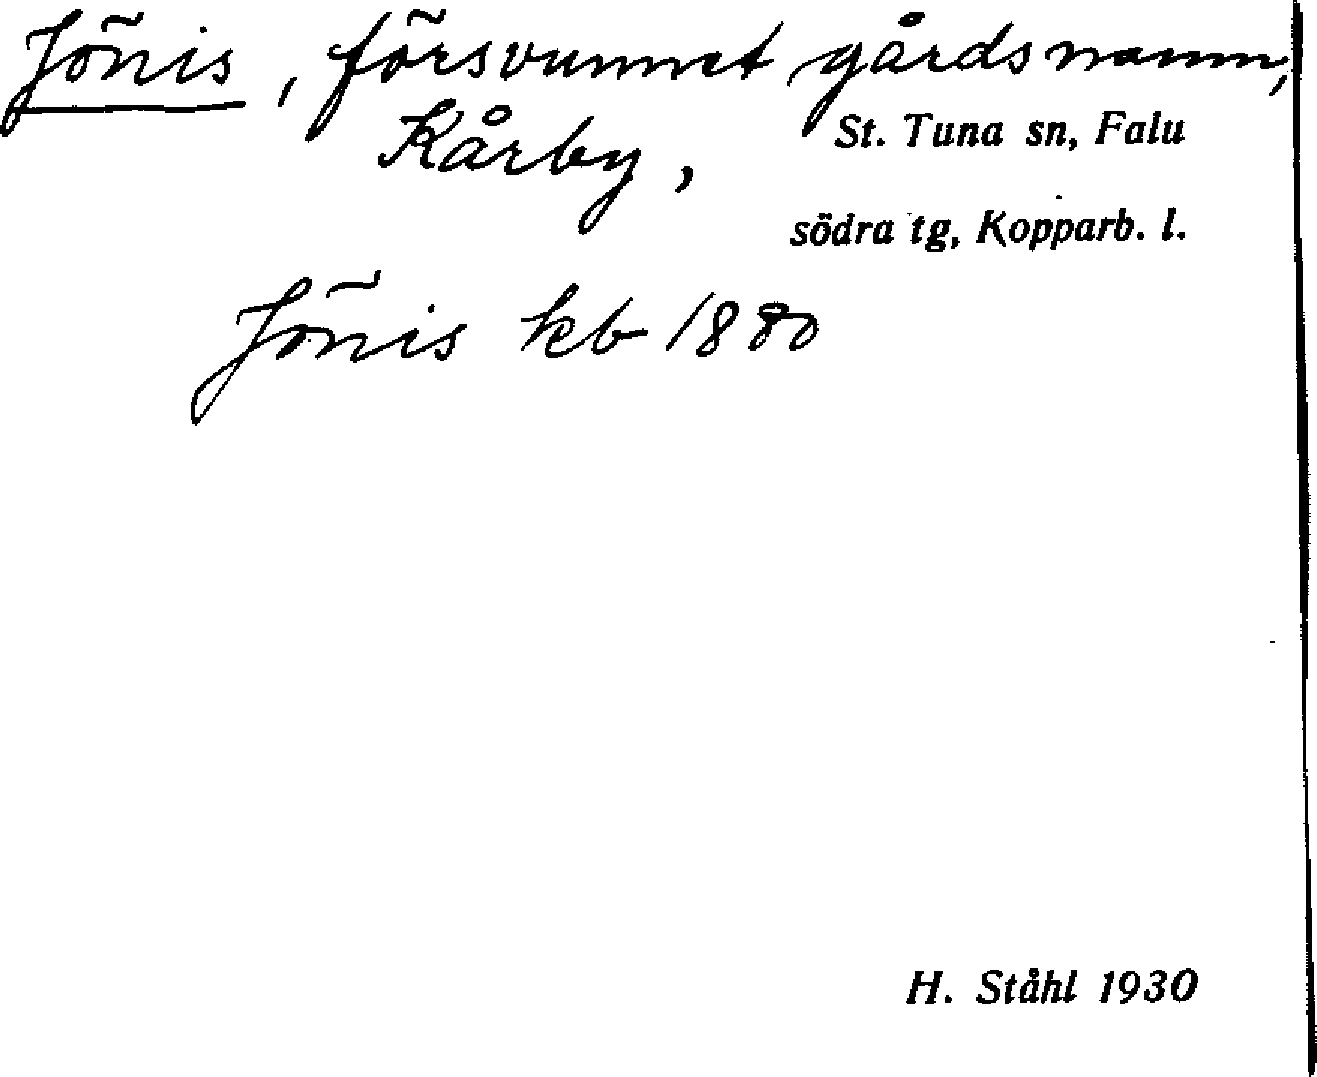 Jönis, försvunnet gårdsnamn,
Kårby, St. Tuna sn, Falu
södra tg, Kopparb. l.
Jönis kb 1880
H. Ståhl 1930